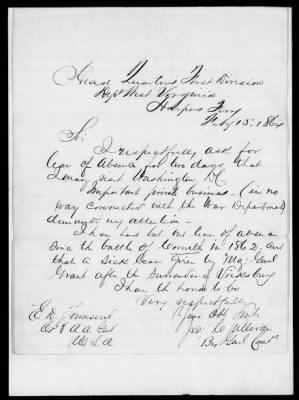 Head Quarters First Division
Dept West Virginia
Harpers Ferry
Feby 15, 1864
Sir
I respectfully ask for
leave of absence for two days, that
I may visit Washington, D,C
Important private business – (in no
way connected with the War Department)
demands my attention –
I have had but one leave of absence
since the battle of Corinth in 1862, and
that a Sick leave given by Maj. Genl
Grant after the surrender of Vicksburg
I have the honor to be
Very respectfully
Your Obt Servt
Jno. C Sullivan
Brig Genl Comd
E. D. Townsend
Col & A. A. Genl
U. S. A